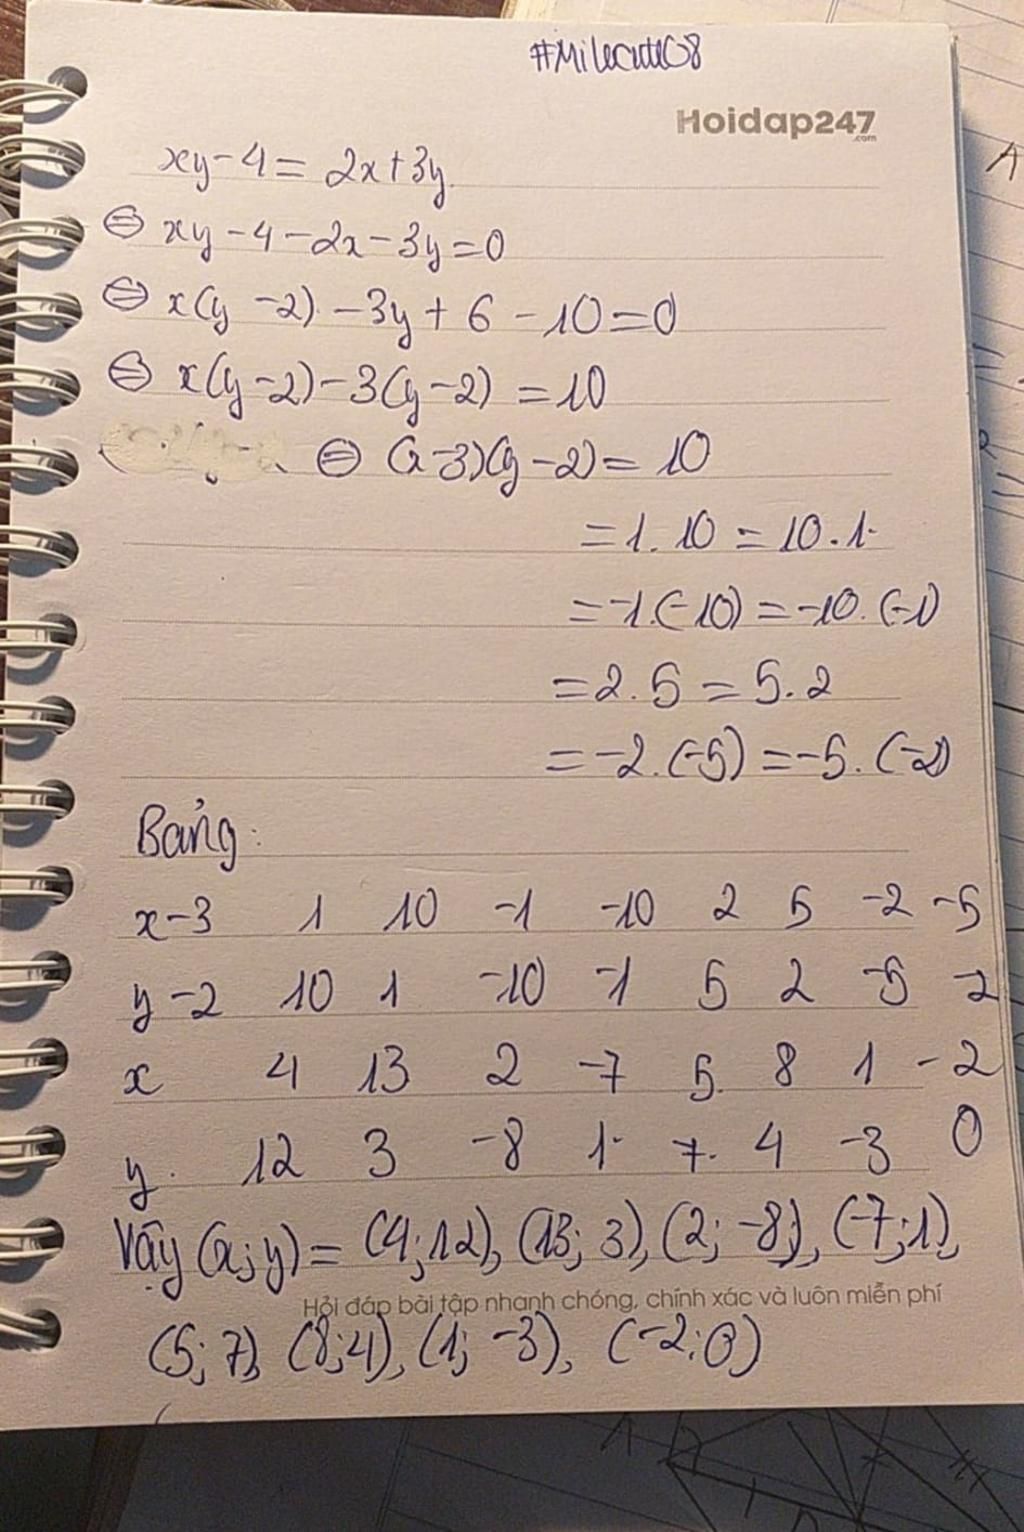 #Milecute08
Hoidap247
.com
xy-4 = 2x+3y
⇔ xy-4-2x-3y=0
⇔ x(y-2)-3y+6-10=0
⇔ x(y-2)-3(y-2)=10
⇔ (x-3)(y-2)=10
=1.10=10.1
=-1.(-10)=-10.(-1)
=2.5=5.2
=-2.(-5)=-5.(-2)
Bảng:
x-3 1 10 -1 -10 2 5 -2 -5
y-2 10 1 -10 -1 5 2 -5 -2
x 4 13 2 -7 5 8 1 -2
y 12 3 -8 1 7 4 -3 0
Vậy (x;y)= (4;12), (13; 3), (2; -8), (-7;1),
Hỏi đáp bài tập nhanh chóng, chính xác và luôn miễn phí
(5; 7), (8;4), (1; -3), (-2;0)